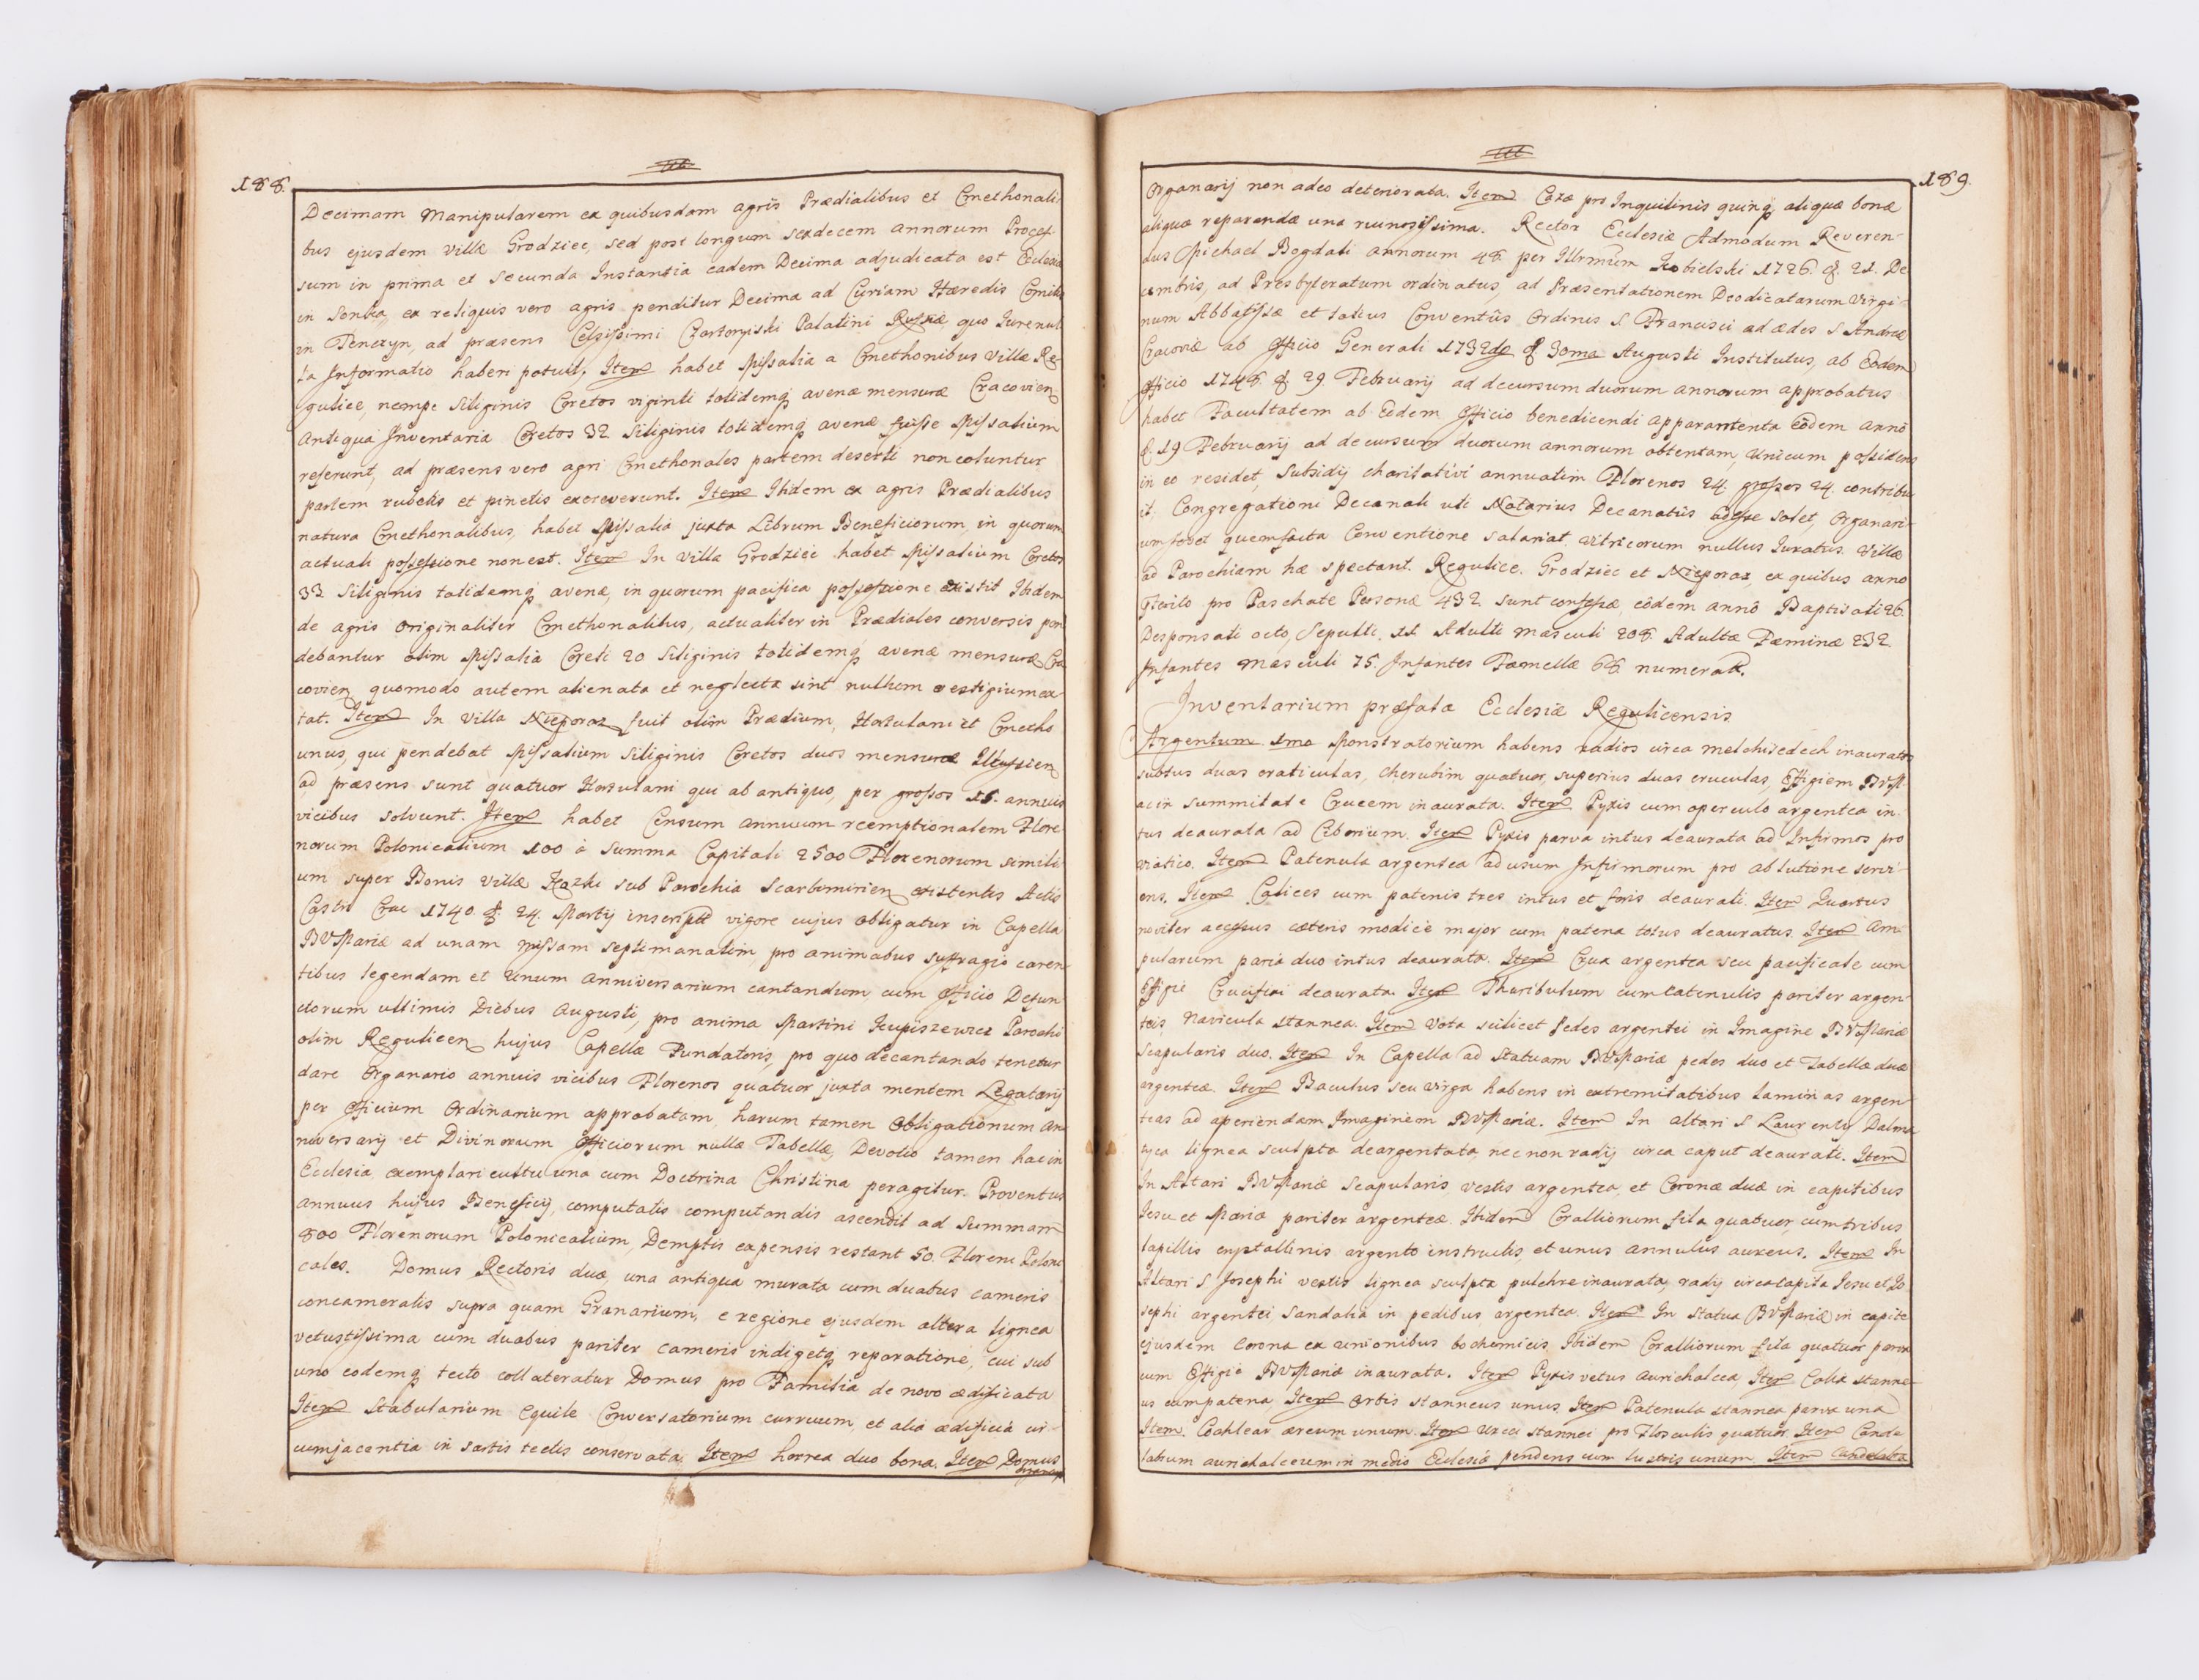 188.
Decimam Manipularem ex quibusdam agris Prædialibus et Cmethonali-
bus ejusdem Villæ Grodziec, sed post longum sexdecem annorum Proces-
sum in prima et secunda Instantia eadem Decima adjudicata est Ecclesiæ
in Sonka, ex reliquis vero agris penditur Decima ad Curiam Hæredis Comitis
in Tenczyn, ad præsens Celsissimi Czartoryiski Palatini Russiæ, quo Jure nul-
la Informatio haberi potuit, Item habet Missalia a Cmethonibus Villæ Re-
gulice, nempe Siliginis Coretos viginti totidemq avenæ mensuræ Cracovien
antiqua Inventaria Coretos 32 Siliginis totidemq avenæ fuisse Missalium
referunt, ad præsens vero agri Cmethonales partem deserti non coluntur
partem rubetis et pinetis excreverunt. Item Ibidem ex agris Prædialibus
natura Cmethonalibus, habet Missalia juxta Librum Beneficiorum, in quorum
actuali possessione non est. Item In Villa Grodziec habet Missalium Coretos
33 Siliginis totidemq avenæ, in quorum pacifica possessione existit Ibidem
de agris originaliter Cmethonalibus, actualiter in Prædiales conversis pen-
debantur olim Missalia Coreti 20 Siliginis totidemq avenæ mensuræ Cra-
covien, quomodo autem alienata et neglecta sint nullum vestigium ex-
tat. Item In Villa Nieporaz fuit olim Prædium, Hortulani et Cmetho
unus, qui pendebat Missalium Siliginis Coretos duos mensuræ Ilkussien
ad præsens sunt quatuor Hortulani qui ab antiquo, per grossos 15. annuis
vicibus solvunt. Item habet Censum annuum reemptionalem Flore-
norum Polonicalium 100 a Summa Capitali 2500 Florenorum simili-
um super Bonis Villæ Kozki sub Parochia Scarbimirien existentis Actis
Castri Crac 1740. d. 24. Martij inscriptæ vigore cujus obligatur in Capella
BVMariæ ad unam missam septimanatim, pro animabus suffragio caren-
tibus legendam et Unum anniversarium cantandum cum Officio Defun-
ctorum ultimis Diebus Augusti, pro anima Martini Kupiszewicz Parochi
olim Regulicen, hujus Capellæ Fundatoris, pro quo decantando tenetur
dare Organario annuis vicibus Florenos quatuor juxta mentem Legatarij
per Officium Ordinarium approbatam, harum tamen Obligationum an-
niversarij et Divinorum Officiorum nullæ Tabellæ, Devotio tamen hac in
Ecclesia exemplari cultu una cum Doctrina Christina peragitur. Proventus
annuus hujus Beneficij, computatis computandis ascendit ad Summam
800 Florenorum Polonicalium, Demptis expensis restant 50. Floreni Poloni-
cales. Domus Rectoris duæ, una antiqua murata cum duabus cameris
concameratis supra quam Granarium, e regione ejusdem altera lignea
vetustissima cum duabus pariter cameris indigetq reparatione, cui sub
uno eodemq tecto collateratur Domus pro Familia de novo ædificata
Item Stabularium Equile Conversatorium curruum, et alia ædificia cir-
cumjacentia in sartis tectis conservata. Item horrea duo bona. Item Domus
189.
Organarij non adeo deteriorata. Item Casæ pro Inquilinis quinq aliquæ bonæ
aliquæ reparandæ una ruinosissima. Rector Ecclesiæ Admodum Reveren-
dus Michael Bogdali annorum 48. per Illrmum Kobielski 1726. d. 21. De-
cembris, ad Presbyteratum ordinatus, ad Præsentationem Deodicatarum Virgi-
num Abbatissæ et totius Conventus Ordinis S. Francisci ad ædes S Andreæ
Cracoviæ ab Officio Generali 1732do d 30ma Augusti Institutus, ab Eodem
Officio 1748. d. 29. Februarij ad decursum duorum annorum approbatus
habet Facultatem ab Eodem Officio benedicendi apparamenta Eodem anno
d. 19 Februarij ad decursum duorum annorum obtentam, Unicum possidens
in eo residet, Subsidij charitativi annuatim Florenos 24. grossos 24. contribu-
it. Congregationi Decanali uti Notarius Decanatus adesse solet, Organari-
um fovet quem facta Conventione salariat, Vitricorum nullus Juratus. Villæ
ad Parochiam hæ spectant. Regulice. Grodziec et Nieporaz, ex quibus anno
præterito pro Paschate Personæ 432 sunt confessæ, eodem anno Baptisati 26.
Desponsati octo, Sepulti. 11. Adulti masculi 208. Adultæ Fæminæ 232.
Infantes masculi 75. Infantes Fæmellæ 68. numeratæ.
Inventarium præfatæ Ecclesiæ Regulicensis
Argentum 1mo Monstratorium habens radios circa melchisedech inauratos
subtus duas craticulas, Cherubim quatuor, superius duas cruculas, Effigiem BVM
ac in summitate Crucem inaurata. Item Pyxis cum operculo argentea in-
tus deaurata ad Ciborium. Item Pyxis parva intus deaurata ad Infirmos pro
viatico. Item Patenula argentea ad usum Infirmorum pro ablutione servi-
ens. Item Calices cum patenis tres intus et foris deaurati. Item Quartus
noviter accessus cæteris modicè major cum patena totus deauratus. Item Am-
pularum paria duo intus deaurata. Item Crux argentea seu pacificale cum
Effigie Crucifixi deaurata. Item Thuribulum cum Catenulis pariter argen-
teis Navicula stannea. Item Vota scilicet Pedes argentei in Imagine BVMariæ
Scapularis duo. Item In Capella ad Statuam BVMariæ pedes duo et Tabellæ duæ
argenteæ. Item Baculus seu virga habens in extremitatibus laminas argen-
teas ad aperiendam Imaginem BVMariæ. Item In altari S Laurentij Dalma-
tyca lignea sculpta deargentata nec non radij circa caput deaurati. Item
In Altari BVMariæ Scapularis vestis argentea, et Coronæ duæ in capitibus
Jesu et Mariæ pariter argenteæ. Ibidem Coralliorum fila quatuor, cum tribus
lapillis crystallinis argento instructis, et unus annulus aureus. Item In
Altari S Josephi vestis lignea sculpta pulchre inaurata, radij circa capita Jesu et Jo-
sephi argentei Sandalia in pedibus argentea. Item In Statua BVMariæ in capite
ejusdem Corona ex unionibus bochemicis Ibidem Coralliorum fila quatuor parva
cum Effigie BVMariæ inaurata. Item Pyxis vetus aurichalcea Item Calix stanne-
us cum patena, Item Orbis stanneus unus, Item Patenula stannea parva una
Item. Cochlear æreum unum. Item Urcei stannei pro Flosculis quatuor. Item Cande-
labrum aurichalceum in medio Ecclesiæ pendens cum lustris unum. Item Candelabra